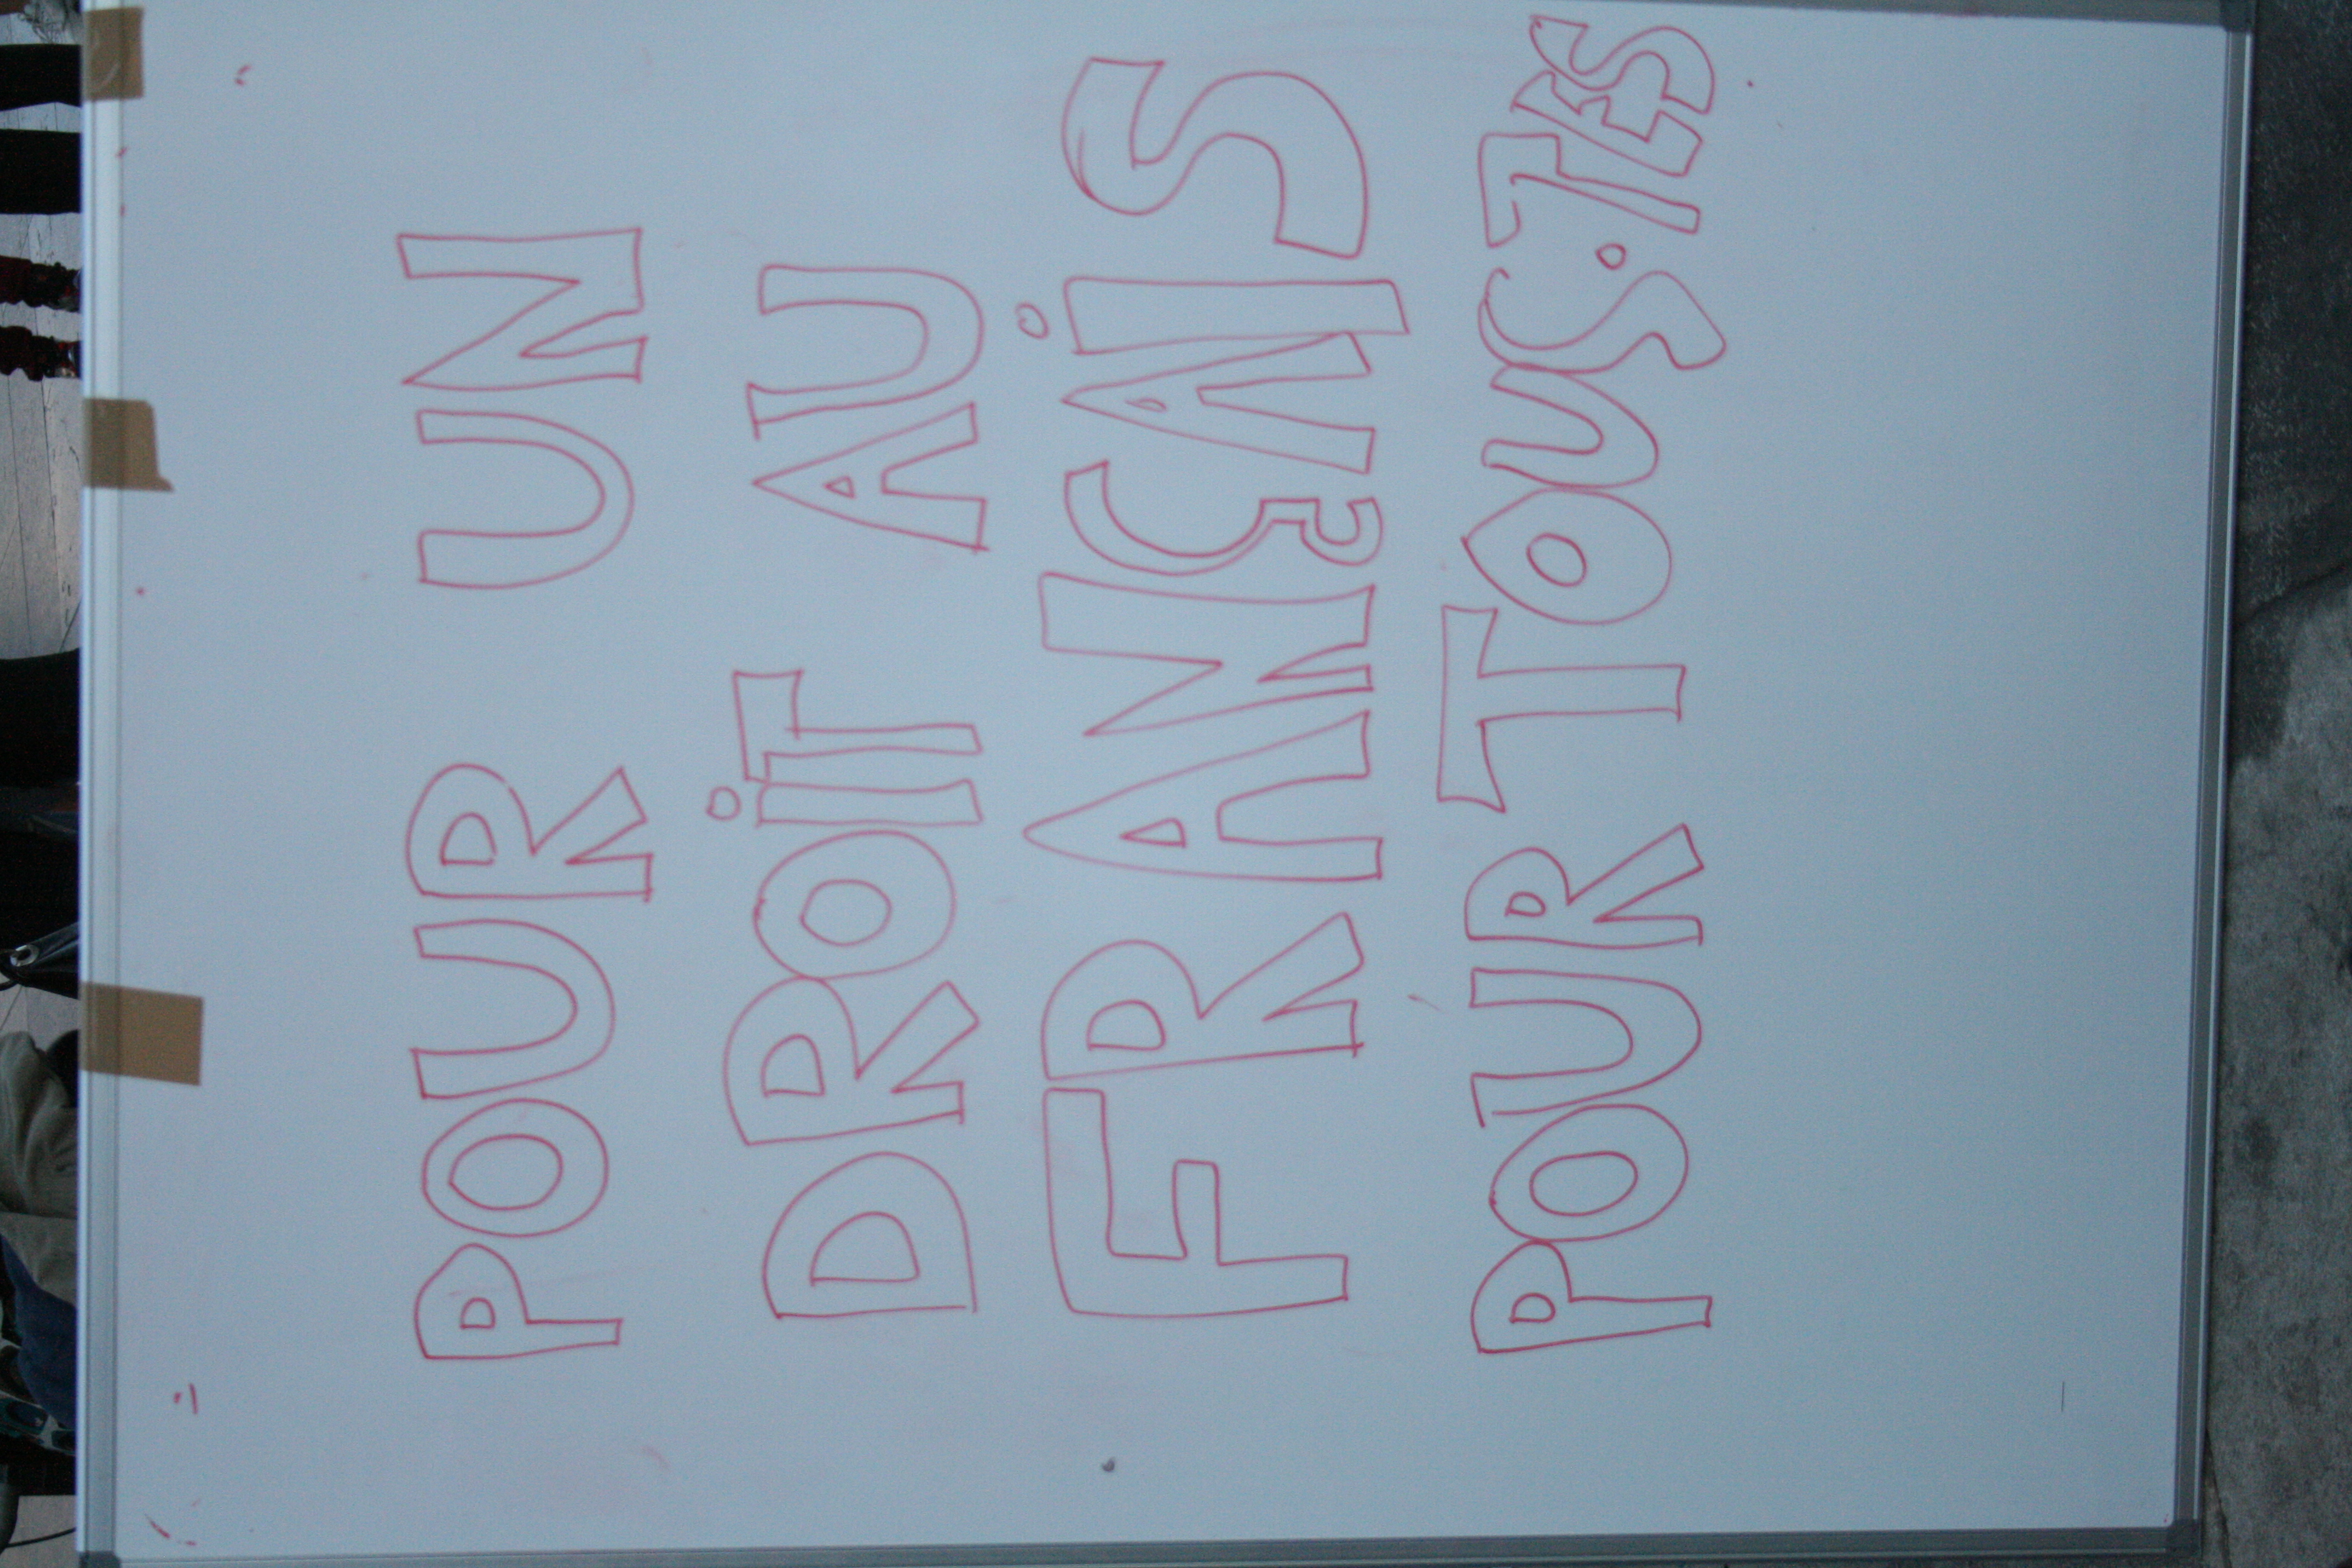 POUR UN
DROIT AU
FRANÇAIS
POUR TOUS·TES